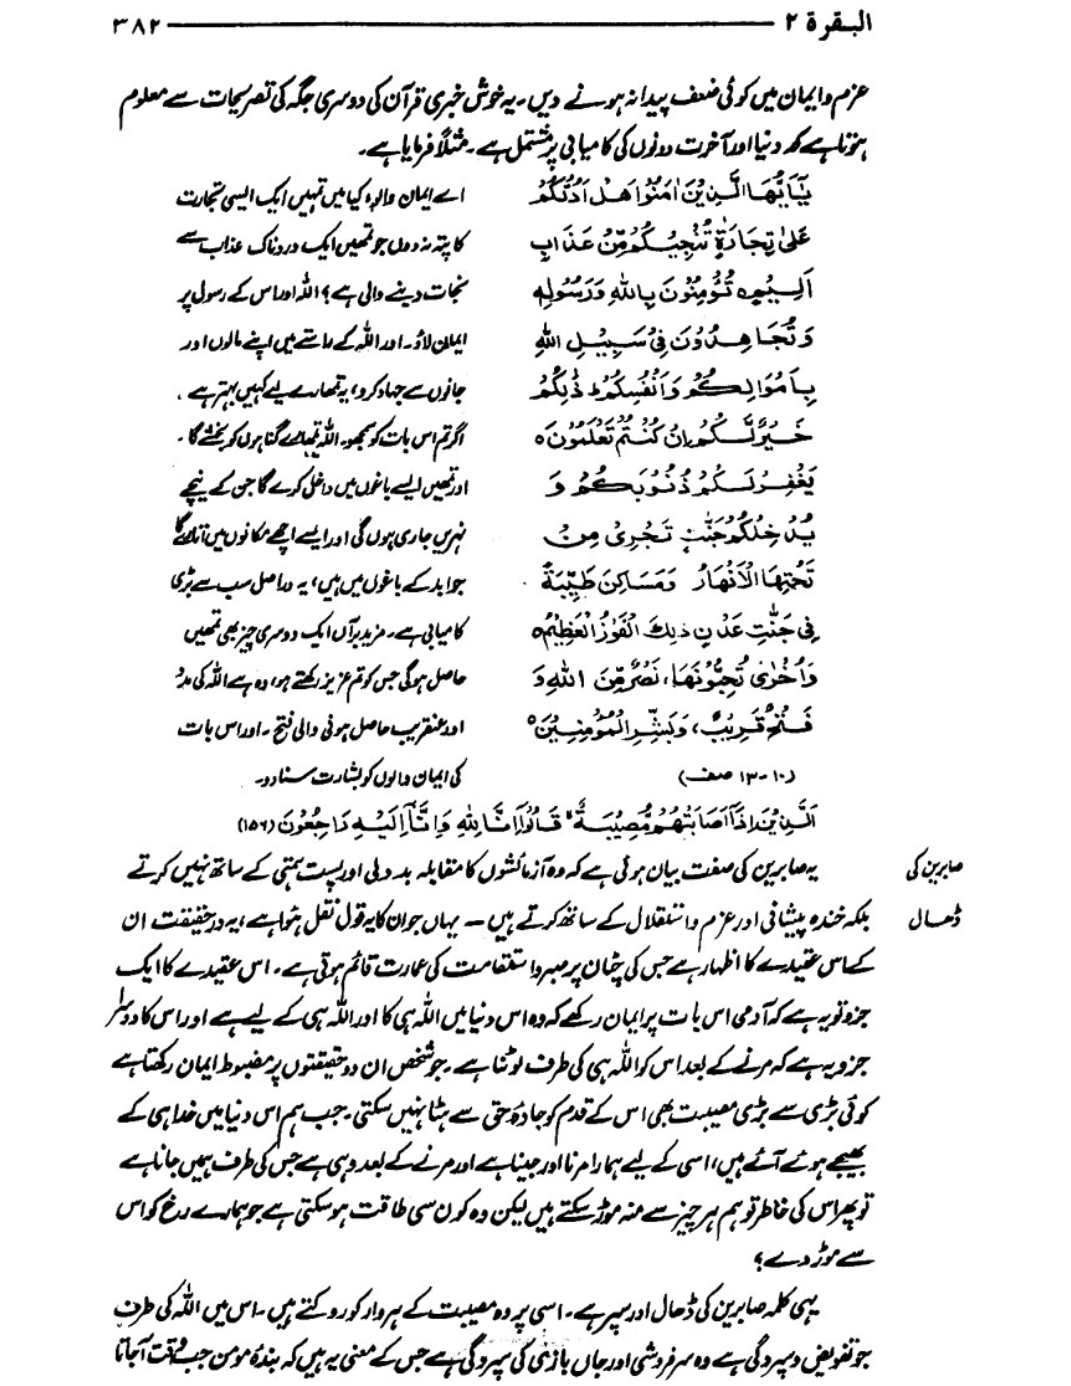 البقرة ۲ ۳۸۲
عزم و ایمان میں کوئی ضعف پیدا نہ ہونے دیں۔ یہ خوش خبری قرآن کی دوسری جگہ کی تصریحات سے معلوم
ہوتا ہے کہ دنیا اور آخرت دونوں کی کامیابی پر مشتمل ہے۔ مثلاً فرمایا ہے۔
يٰٓاَيُّهَا الَّذِيْنَ اٰمَنُوْا هَلْ اَدُلُّكُمْ
عَلٰى تِجَارَةٍ تُنْجِيْكُمْ مِّنْ عَذَابٍ
اَلِيْمٍ ه تُؤْمِنُوْنَ بِاللّٰهِ وَرَسُوْلِهٖ
وَتُجَاهِدُوْنَ فِيْ سَبِيْلِ اللّٰهِ
بِاَمْوَالِكُمْ وَاَنْفُسِكُمْ ط ذٰلِكُمْ
خَيْرٌ لَّكُمْ اِنْ كُنْتُمْ تَعْلَمُوْنَ ه
يَغْفِرْ لَكُمْ ذُنُوْبَكُمْ وَ
يُدْخِلْكُمْ جَنّٰتٍ تَجْرِيْ مِنْ
تَحْتِهَا الْاَنْهَارُ وَمَسَاكِنَ طَيِّبَةً
فِيْ جَنّٰتِ عَدْنٍ ذٰلِكَ الْفَوْزُ الْعَظِيْمُ ه
وَاُخْرٰى تُحِبُّوْنَهَا، نَصْرٌ مِّنَ اللّٰهِ وَ
فَتْحٌ قَرِيْبٌ، وَبَشِّرِ الْمُؤْمِنِيْنَ ه
(۱۰-۱۳ صف)
اے ایمان والو، کیا میں تمہیں ایک ایسی تجارت
کا پتہ نہ دوں جو تمھیں ایک دردناک عذاب سے
نجات دینے والی ہے؟ اللہ اور اس کے رسول پر
ایمان لاؤ۔ اور اللہ کے راستے میں اپنے مالوں اور
جانوں سے جہاد کرو، یہ تمھارے لیے کہیں بہتر ہے۔
اگر تم اس بات کو سمجھو۔ اللہ تمہارے گناہوں کو بخشے گا۔
اور تمھیں ایسے باغوں میں داخل کرے گا جن کے نیچے
نہریں جاری ہوں گی اور ایسے اچھے مکانوں میں اتارے گا
جو ابد کے باغوں میں ہیں، یہ دراصل سب سے بڑی
کامیابی ہے۔ مزید برآں ایک دوسری چیز بھی تمھیں
حاصل ہوگی جس کو تم عزیز رکھتے ہو، وہ ہے اللہ کی مدد
اور عنقریب حاصل ہونی والی فتح۔ اور اس بات
کی ایمان والوں کو بشارت سنا دو۔
اَلَّذِيْنَ اِذَآ اَصَابَتْهُمْ مُّصِيْبَةٌ قَالُوْٓا اِنَّا لِلّٰهِ وَاِنَّآ اِلَيْهِ رَاجِعُوْنَ (۱۵۶)
صابرین کی
ڈھال
یہ صابرین کی صفت بیان ہوئی ہے کہ وہ آزمائشوں کا مقابلہ بددلی اور پست ہمتی کے ساتھ نہیں کرتے
بلکہ خندہ پیشانی اور عزم و استقلال کے ساتھ کرتے ہیں — یہاں جو ان کا یہ قول نقل ہوا ہے، یہ درحقیقت ان
کے اس عقیدے کا اظہار ہے جس کی چٹان پر صبر و استقامت کی عمارت قائم ہوتی ہے۔ اس عقیدے کا ایک
جزو تو یہ ہے کہ آدمی اس بات پر ایمان رکھے کہ وہ اس دنیا میں اللہ ہی کا اور اللہ ہی کے لیے ہے اور اس کا دوسرا
جزو یہ ہے کہ مرنے کے بعد اس کو اللہ ہی کی طرف لوٹنا ہے۔ جو شخص ان دو حقیقتوں پر مضبوط ایمان رکھتا ہے
کوئی بڑی سے بڑی مصیبت بھی اس کے قدم کو جادۂ حق سے ہٹا نہیں سکتی۔ جب ہم اس دنیا میں خدا ہی کے
بھیجے ہوئے آئے ہیں، اسی کے لیے ہمارا مرنا اور جینا ہے اور مرنے کے بعد وہی ہے جس کی طرف ہمیں جانا ہے
تو پھر اس کی خاطر تو ہم ہر چیز سے منہ موڑ سکتے ہیں لیکن وہ کون سی طاقت ہو سکتی ہے جو ہمارے رخ کو اس
سے موڑ دے؟
یہی کلمہ صابرین کی ڈھال اور سپر ہے۔ اسی پر وہ مصیبت کے ہر وار کو روکتے ہیں۔ اس میں اللہ کی طرف
جو تفویض و سپردگی ہے وہ سرفروشی اور جاں بازی کی سپردگی ہے جس کے معنی یہ ہیں کہ بندۂ مومن جب وقت آجاتا